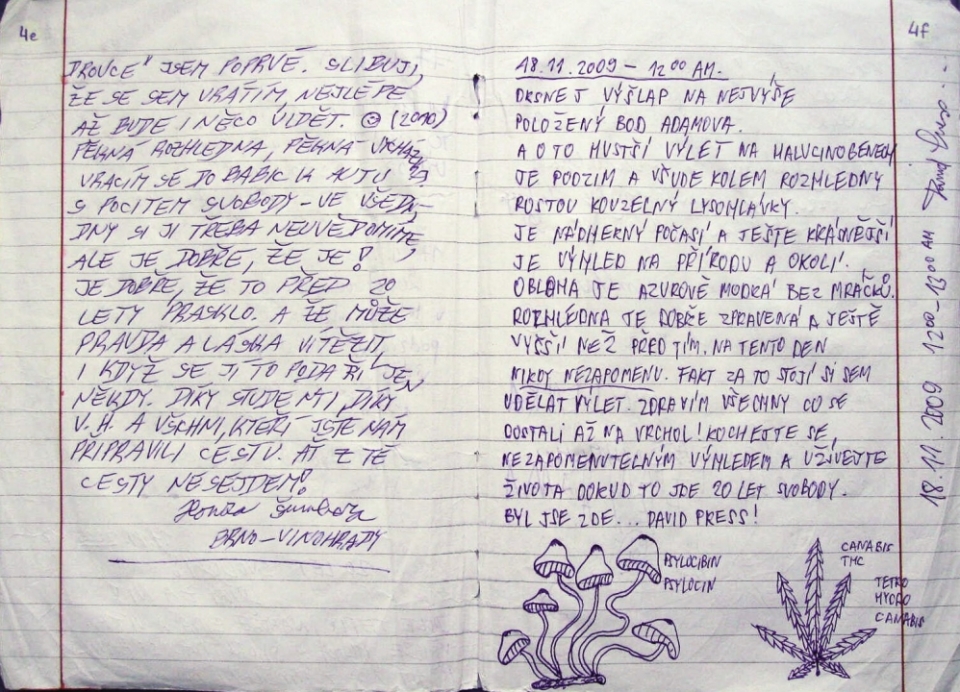 4e
DROVCE" JSEM POPRVÉ. SLIBUJI,
ŽE SE SEM VRÁTÍM, NEJLÉPE
AŽ BUDE I NĚCO VIDĚT. ☺ (2010)
PĚKNÁ ROZHLEDNA, PĚKNÁ
VRACÍM SE DO BABIC K AUTU
S POCITEM SVOBODY – VE VŠEDNÍ
DNY SI JI TŘEBA NEUVĚDOMÍME,
ALE JE DOBŘE, ŽE JE!
JE DOBŘE, ŽE TO PŘED 20
LETY PRASKLO. A ŽE MŮŽE
PRAVDA A LÁSKA VÍTĚZIT,
I KDYŽ SE JÍ TO PODAŘÍ JEN
NĚKDY. DÍKY STUDENTI, DÍKY
V.H. A VŠICHNI, KTEŘÍ JSTE NÁM
PŘIPRAVILI CESTU. AŤ Z TÉ
CESTY NESEJDEM!
Honza
BRNO-VINOHRADY
4f
18.11.2009 – 12⁰⁰ AM.
DRSNEJ VÝŠLAP NA NEJVÝŠE
POLOŽENÝ BOD ADAMOVA.
A O TO HUSTŠÍ VÝLET NA HALUCINOGENECH
JE PODZIM A VŠUDE KOLEM ROZHLEDNY
ROSTOU KOUZELNÝ LYSOHLÁVKY.
JE NÁDHERNÝ POČASÍ A JEŠTE KRÁSNĚJŠÍ
JE VÝHLED NA PŘÍRODU A OKOLÍ.
OBLOHA JE AZUROVĚ MODRÁ BEZ MRÁČKŮ.
ROZHLEDNA JE DOBŘE ZPRAVENÁ A JEŠTĚ
VYŠŠÍ NEŽ PŘED TÍM. NA TENTO DEN
NIKDY NEZAPOMENU. FAKT ZA TO STOJÍ SI SEM
UDĚLAT VÝLET. ZDRAVÍM VŠECHNY CO SE
DOSTALI AŽ NA VRCHOL! KOCHEJTE SE,
NEZAPOMENUTELNÝM VÝHLEDEM A UŽÍVEJTE
ŽIVOTA DOKUD TO JDE 20 LET SVOBODY.
BYL JSE ZDE... DAVID PRESS!
PSYLOCIBIN
PSYLOCIN
CANABIS
THC
TETRO
HYDRO
CANABIS
18.11.2009 12⁰⁰-13⁰⁰ AM